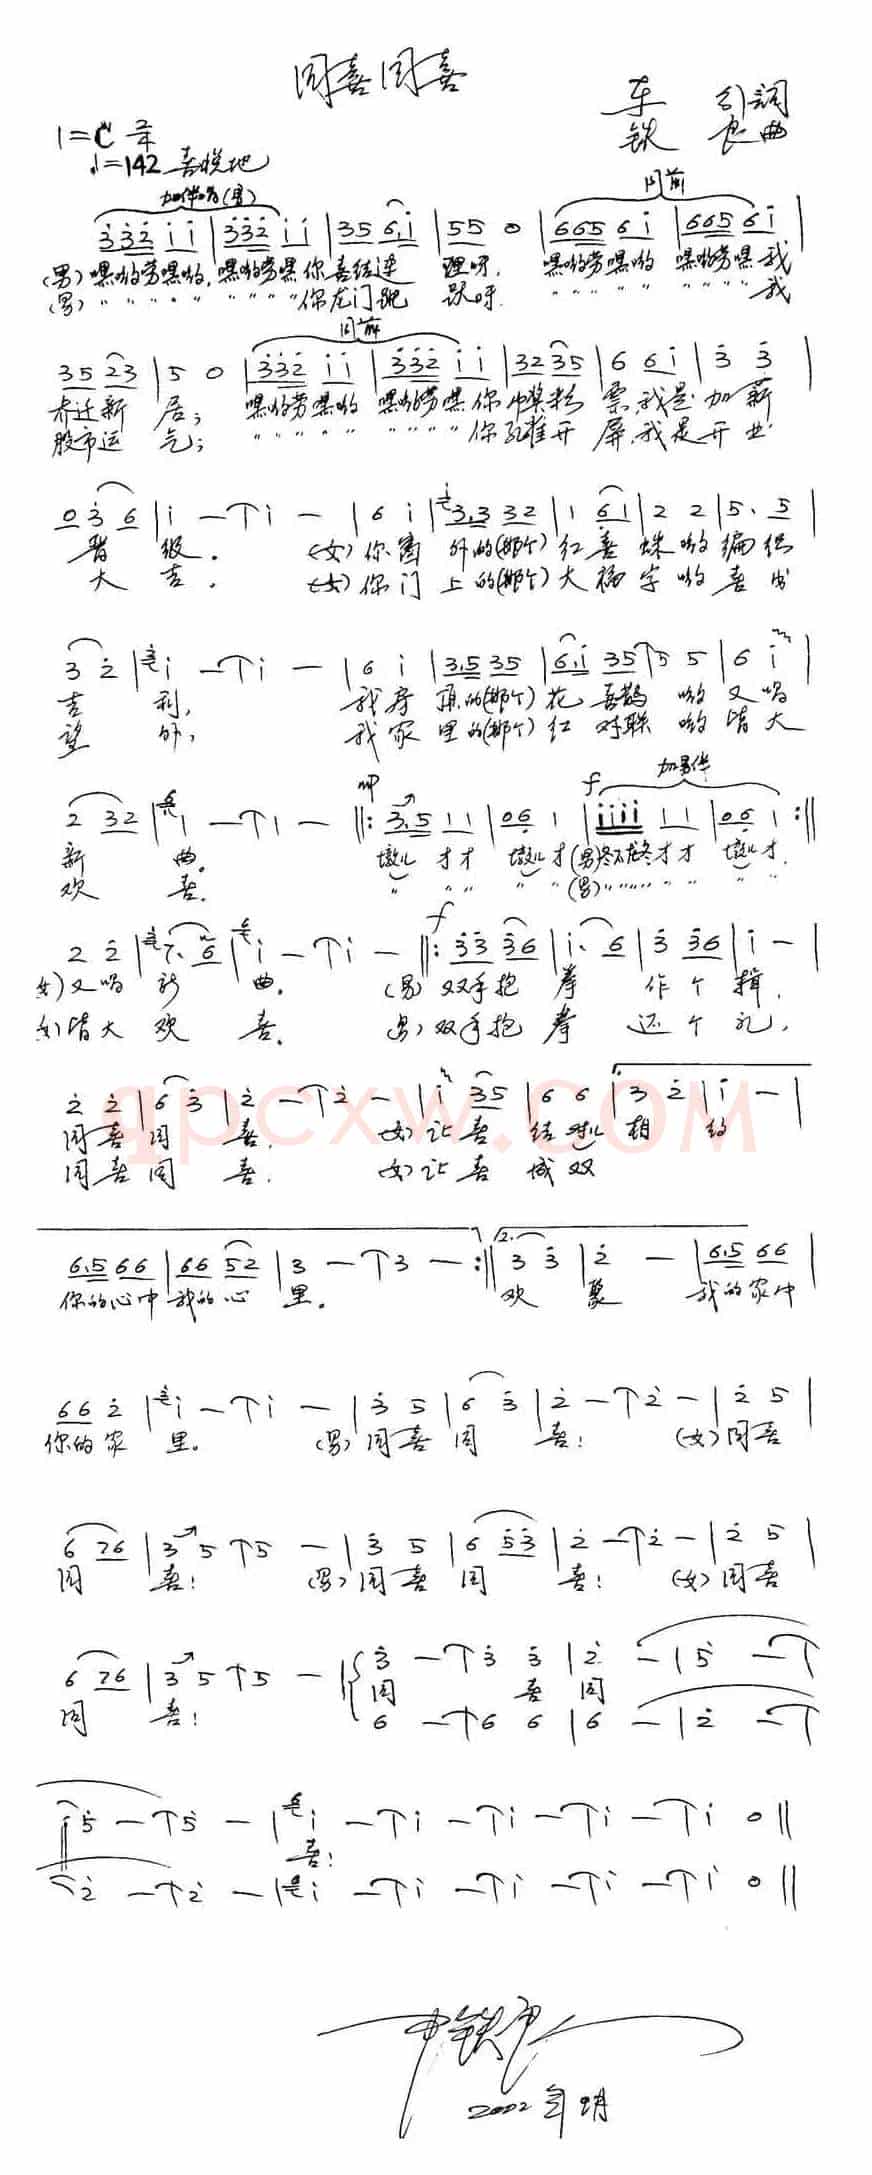 同喜同喜
车 引词
铁 良曲
1=C 2/4
♩=142 喜悦地
加伴唱(男) 同前
3̇3̇2̇ i i | 3̇3̇2̇ i i | 35 6.i | 55 0 | 665 6 i | 665 6 i |
(男) 嘿哟劳嘿哟, 嘿哟劳嘿你喜结连 理呀, 嘿哟劳嘿哟 嘿哟劳嘿我
(男) " " " " " " " " " 你龙门跳 跃呀 " " " " " " " " " 我
同前
35 23 | 5 0 | 3̇3̇2̇ i i | 3̇3̇2̇ i i | 32 35 | 6 6i | 3̇ 3̇ |
乔迁新 居; 嘿哟劳嘿哟 嘿哟劳嘿你中奖彩 票,我是加薪
股市运 气; " " " " " " " " " 你孔雀开 屏,我是开业
0 3̇ 6 | i — ↑ i — | 6 i | 3.3 32 | 1 6i | 2 2 | 5. 5 |
晋 级. (女)你窗 外的(那个)红喜蛛哟编织
大 吉. (女)你门上的(那个)大福字哟喜出
3 2 | i — ↑ i — | 6 i | 3.5 35 | 6.i 35 | 5 5 | 6 i |
吉 利, 我房 顶的(那个)花 喜鹊 哟 又唱
望 外, 我家 里的(那个)红 对联 哟 皆大
加男伴
2 32 | 1 — ↑ 1 — ‖: mp 3.5 11 | 06 1 | f iiii 11 | 06 1 :‖
新 曲. 才才 才(男) 才才 才.
欢 喜. " " " " " (男) " " " " " " " "
2 2 | 7. 6 | i — ↑ i — ‖: f 3̇3̇ 3̇6 | i. 6 | 3̇ 3̇6 | i — |
女)又唱 新 曲. (男)双手抱 拳 作 个 揖,
女)皆大 欢 喜. (男)双手抱 拳 还 个 礼,
2̇ 2̇ | 6 3̇ | 2̇ — ↑ 2̇ — | i 3̇5 | 6 6 | 1. 3 2 | i — |
同喜同 喜. 女)让喜 结对儿 相 约
同喜同 喜. 女)让喜 成双
6.5 66 | 66 52 | 3 — ↑ 3 — :‖ 2. 3 3̇ | 2̇ — | 6.5 66 |
你的心中 我的心 里. 欢 聚 我的家中
66 2̇ | i — ↑ i — | 3̇ 5 | 6 3̇ | 2̇ — ↑ 2̇ — | 2̇ 5 |
你的家 里. (男)同喜同 喜! (女)同喜
6 76 | 3 5 ↑ 5 — | 3̇ 5 | 6 5̇3̇ | 2̇ — ↑ 2̇ — | 2̇ 5 |
同 喜! (男)同喜同 喜! (女)同喜
6 76 | 3 5 ↑ 5 — | 3̇ — ↑ 3̇ 3̇ | 2̇ — | 5̇ — ↑
同 喜! 同 喜 同
6 — ↑ 6 6 | 6 — | 2̇ — ↑
5̇ — ↑ 5̇ — | i — ↑ i — ↑ i — ↑ i — ↑ i 0 ‖
喜!
2̇ — ↑ 2̇ — | i — ↑ i — ↑ i — ↑ i — ↑ i 0 ‖
尹铁良
2002年9月
qpcxw.com